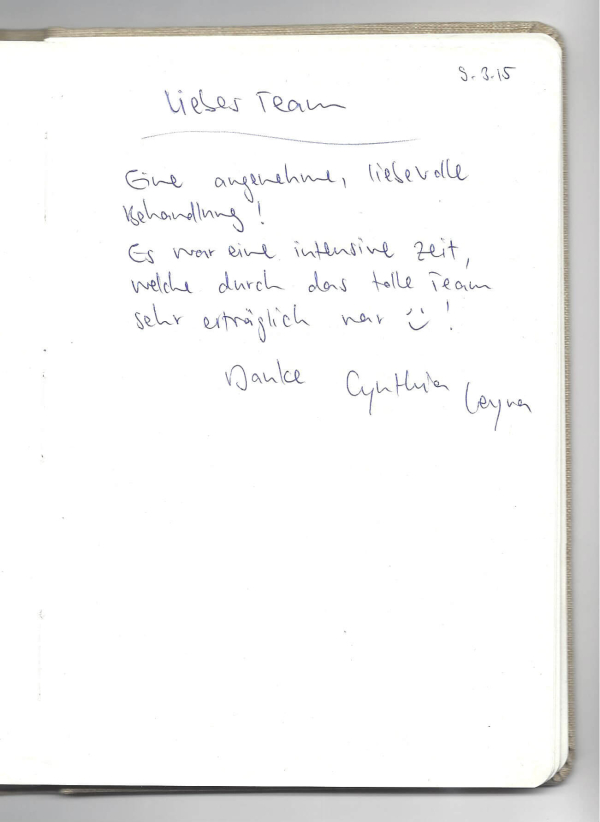 9.3.15
Liebes Team
Eine angenehme, liebevolle
Behandlung!
Es war eine intensive Zeit,
welche durch das tolle Team
sehr erträglich war !
Danke Cynthia